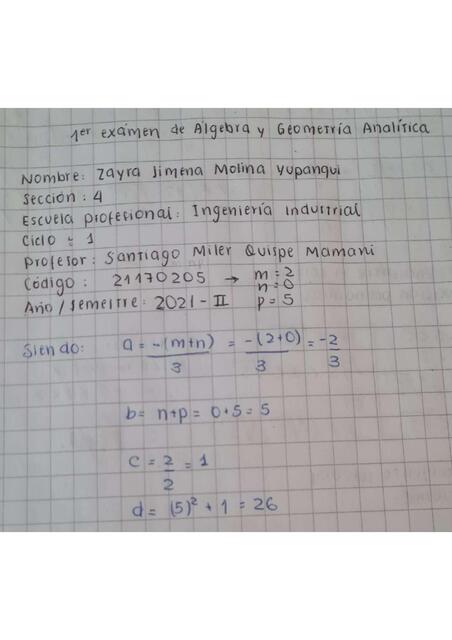 1er exámen de Álgebra y Geometría Analítica
Nombre: Zayra Jimena Molina Yupanqui
Sección: 4
Escuela profesional: Ingeniería Industrial
Ciclo: 1
Profesor: Santiago Miler Quispe Mamani
Código: 21170205 → m = 2
n = 0
Año / Semestre: 2021 - II p = 5
Siendo: a = -(m+n)/3 = -(2+0)/3 = -2/3
b = n+p = 0+5 = 5
c = 2/2 = 1
d = (5)² + 1 = 26